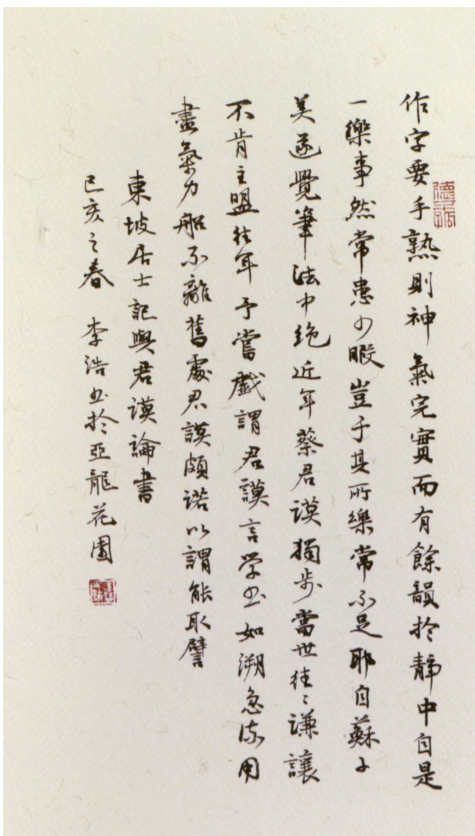 作字要手熟則神氣完實而有餘韻於靜中自是
一樂事然常患少暇豈于其所樂常不足耶自蘇子
美遂覺筆法中绝近年蔡君謨獨步當世往々謙讓
不肯主盟往年予嘗戲謂君謨言学书如溯急流用
盡氣力船不離舊處君謨頗諾以謂能取譬
東坡居士記與君謨論書
己亥之春 李浩书於亞龍花園